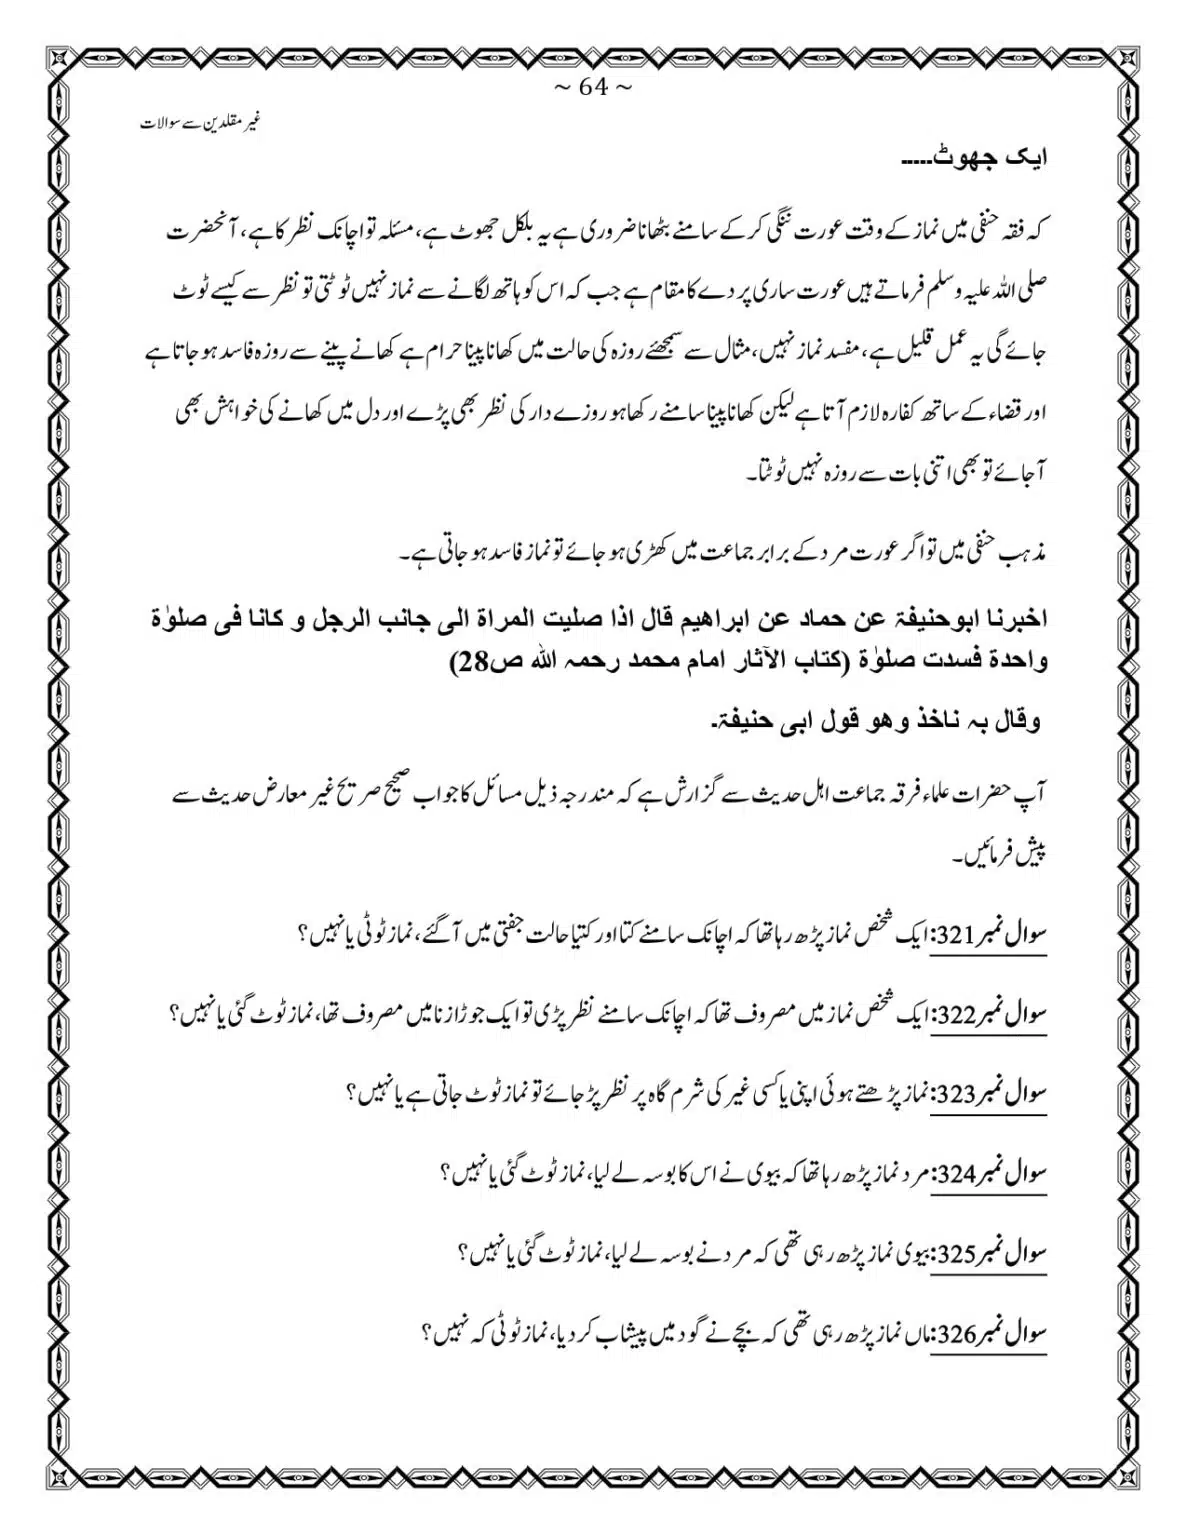 ~ 64 ~
غیر مقلدین سے سوالات
ایک جھوٹ۔۔۔۔۔
کہ فقہ حنفی میں نماز کے وقت عورت ننگی کر کے سامنے بٹھانا ضروری ہے یہ بلکل جھوٹ ہے، مسئلہ تو اچانک نظر کا ہے، آنحضرت
صلی اللہ علیہ وسلم فرماتے ہیں عورت ساری پردے کا مقام ہے جب کہ اس کو ہاتھ لگانے سے نماز نہیں ٹوٹتی تو نظر سے کیسے ٹوٹ
جائے گی یہ عمل قلیل ہے، مفسد نماز نہیں، مثال سے سمجھئے روزہ کی حالت میں کھانا پینا حرام ہے کھانے پینے سے روزہ فاسد ہو جاتا ہے
اور قضاء کے ساتھ کفارہ لازم آتا ہے لیکن کھانا پینا سامنے رکھا ہو روزے دار کی نظر بھی پڑے اور دل میں کھانے کی خواہش بھی
آجائے تو بھی اتنی بات سے روزہ نہیں ٹوٹتا۔
مذہب حنفی میں تو اگر عورت مرد کے برابر جماعت میں کھڑی ہو جائے تو نماز فاسد ہو جاتی ہے۔
اخبرنا ابوحنیفۃ عن حماد عن ابراھیم قال اذا صلیت المراۃ الی جانب الرجل و کانا فی صلوٰۃ
واحدۃ فسدت صلوٰۃ (کتاب الآثار امام محمد رحمہ اللہ ص28)
وقال بہ ناخذ وھو قول ابی حنیفۃ۔
آپ حضرات علماء فرقہ جماعت اہل حدیث سے گزارش ہے کہ مندرجہ ذیل مسائل کا جواب صحیح صریح غیر معارض حدیث سے
پیش فرمائیں۔
سوال نمبر321: ایک شخص نماز پڑھ رہا تھا کہ اچانک سامنے کتا اور کتیا حالت جفتی میں آگئے، نماز ٹوٹی یا نہیں؟
سوال نمبر322: ایک شخص نماز میں مصروف تھا کہ اچانک سامنے نظر پڑی تو ایک جوڑا زنا میں مصروف تھا، نماز ٹوٹ گئی یا نہیں؟
سوال نمبر323: نماز پڑھتے ہوئی اپنی یا کسی غیر کی شرم گاہ پر نظر پڑ جائے تو نماز ٹوٹ جاتی ہے یا نہیں؟
سوال نمبر324: مرد نماز پڑھ رہا تھا کہ بیوی نے اس کا بوسہ لے لیا، نماز ٹوٹ گئی یا نہیں؟
سوال نمبر325: بیوی نماز پڑھ رہی تھی کہ مرد نے بوسہ لے لیا، نماز ٹوٹ گئی یا نہیں؟
سوال نمبر326: ماں نماز پڑھ رہی تھی کہ بچے نے گود میں پیشاب کر دیا، نماز ٹوٹی کہ نہیں؟